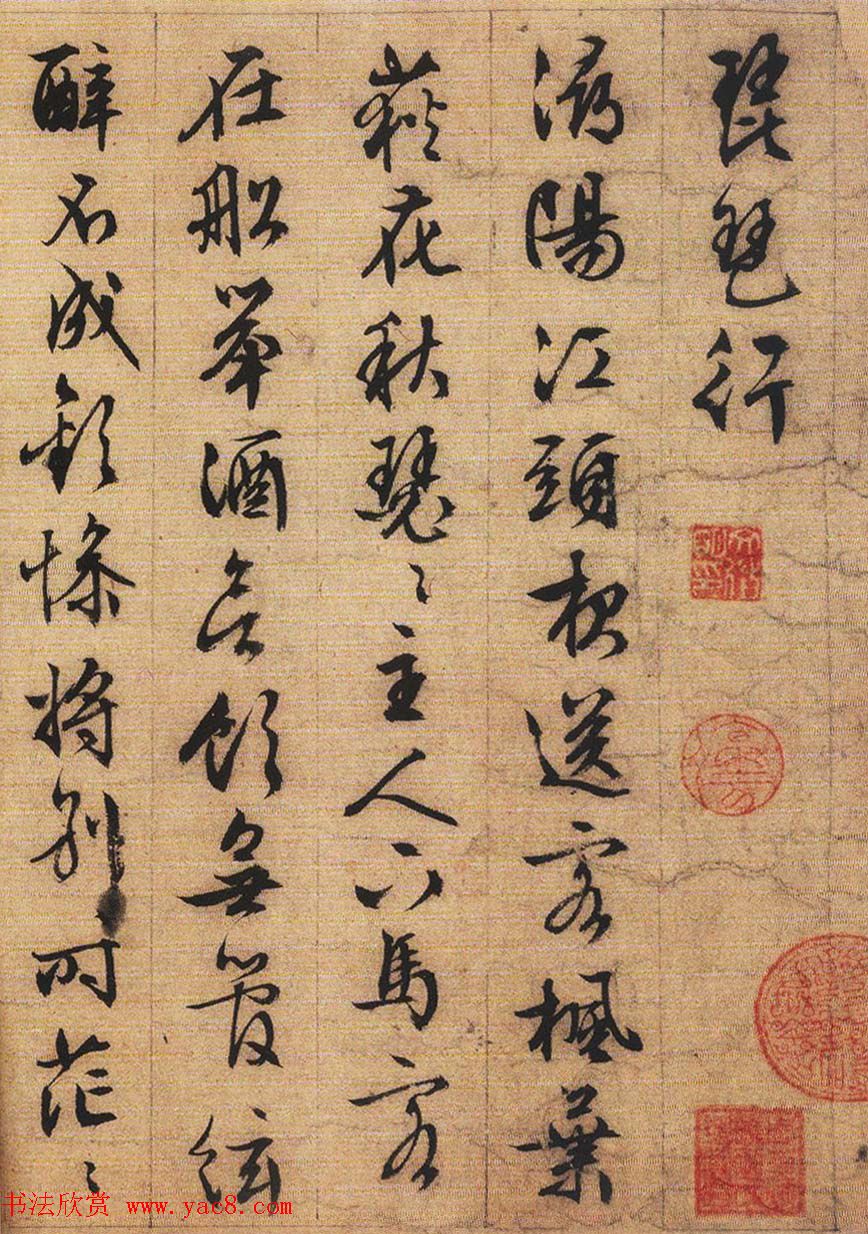 琵琶行
潯陽江頭夜送客楓葉
荻花秋瑟〻主人下馬客
在船舉酒欲飲無管絃
醉不成歡慘將別時茫〻
书法欣赏 www.yac8.com